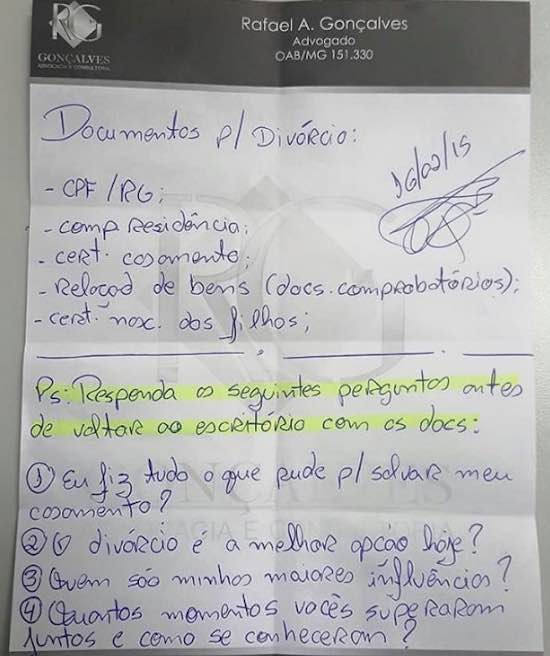 RG
GONÇALVES
ADVOCACIA E CONSULTORIA
Rafael A. Gonçalves
Advogado
OAB/MG 151.330
Documentos p/ Divórcio:
16/02/15
- CPF/RG;
- comp Residência;
- cert. casamento;
- Relação de bens (docs. comprobatórios);
- cert. nasc. dos filhos;
Ps: Responda as seguintes perguntas antes
de voltar ao escritório com os docs:
① Eu fiz tudo o que pude p/ salvar meu
casamento?
② O divórcio é a melhor opção hoje?
③ Quem são minhas maiores influências?
④ Quantos momentos vocês superaram
juntos e como se conheceram?